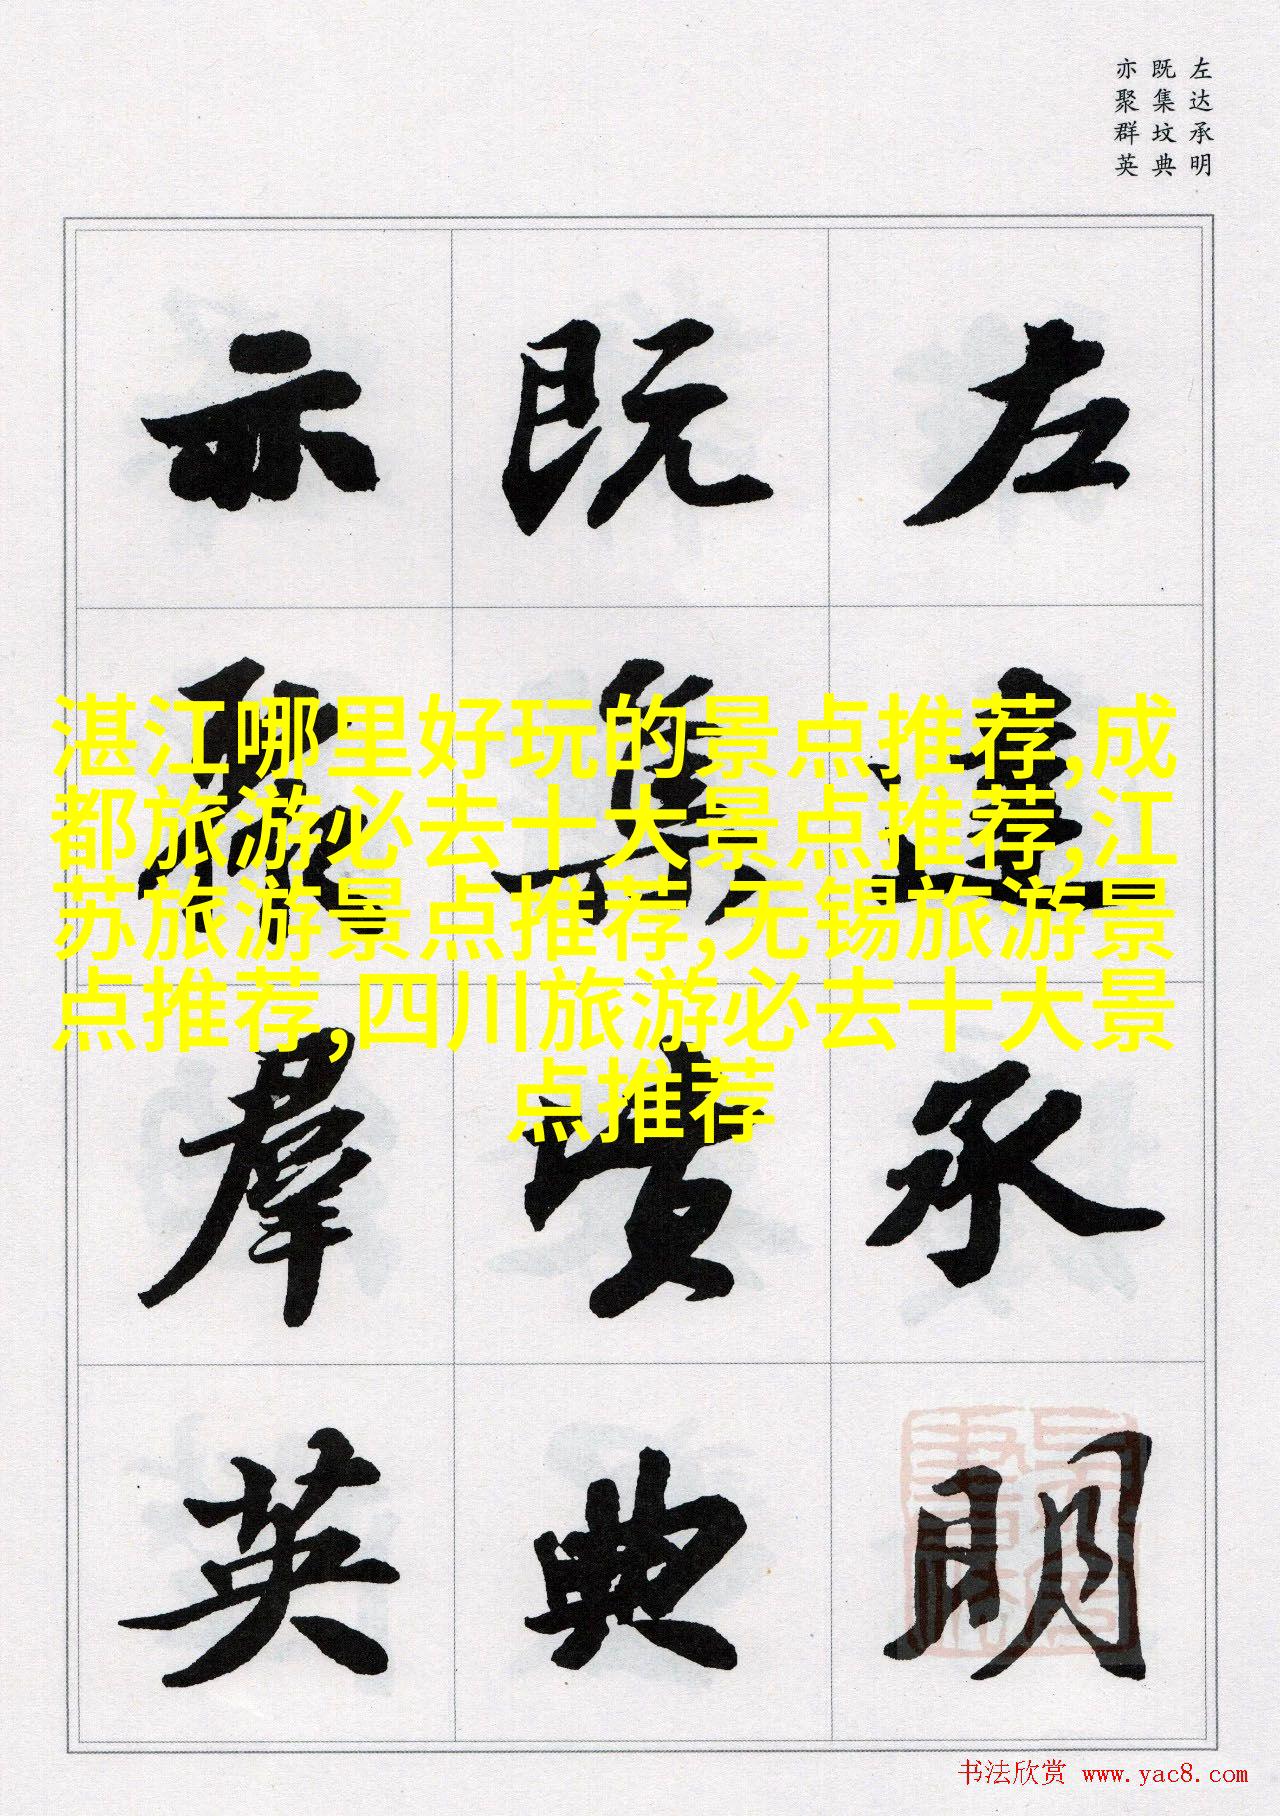 左达承明
既集坟典
亦聚群英
左達承明
既集墳典
亦聚羣英
湛江哪里好玩的景点推荐,成
都旅游必去十大景点推荐,江
苏旅游景点推荐,无锡旅游景
点推荐,四川旅游必去十大景
点推荐
书法欣赏 www.yac8.com